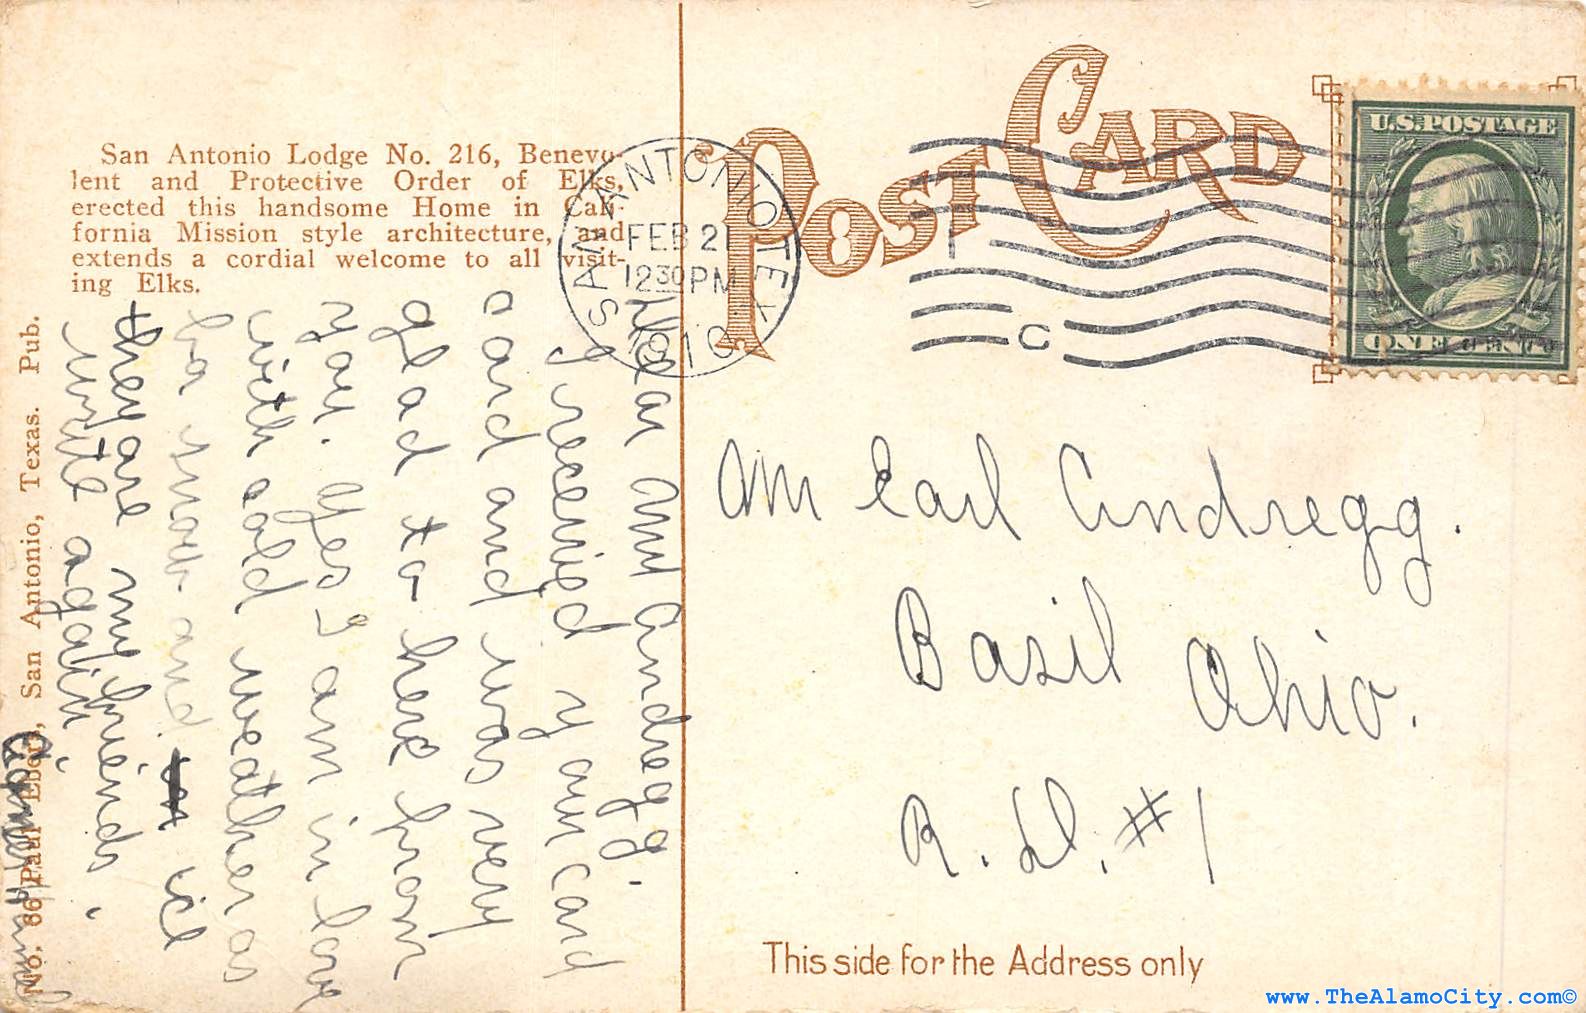 San Antonio Lodge No. 216, Benevo-
lent and Protective Order of Elks,
erected this handsome Home in Cali-
fornia Mission style architecture, and
extends a cordial welcome to all visit-
ing Elks.
No. 86 Paul Ebers, San Antonio, Texas. Pub.
Dear Mr Andregg.
I received your card
card and was very
glad to here from
you. Yes I am in love
with cold weather as
snow and ice
they are my friends.
write again.
POST CARD
SAN ANTONIO TEX
FEB 21
12 30 PM
1910
C
U.S. POSTAGE
ONE CENT
Mr Earl Andregg.
Basil Ohio.
R. D. #1
This side for the Address only
www.TheAlamoCity.com©